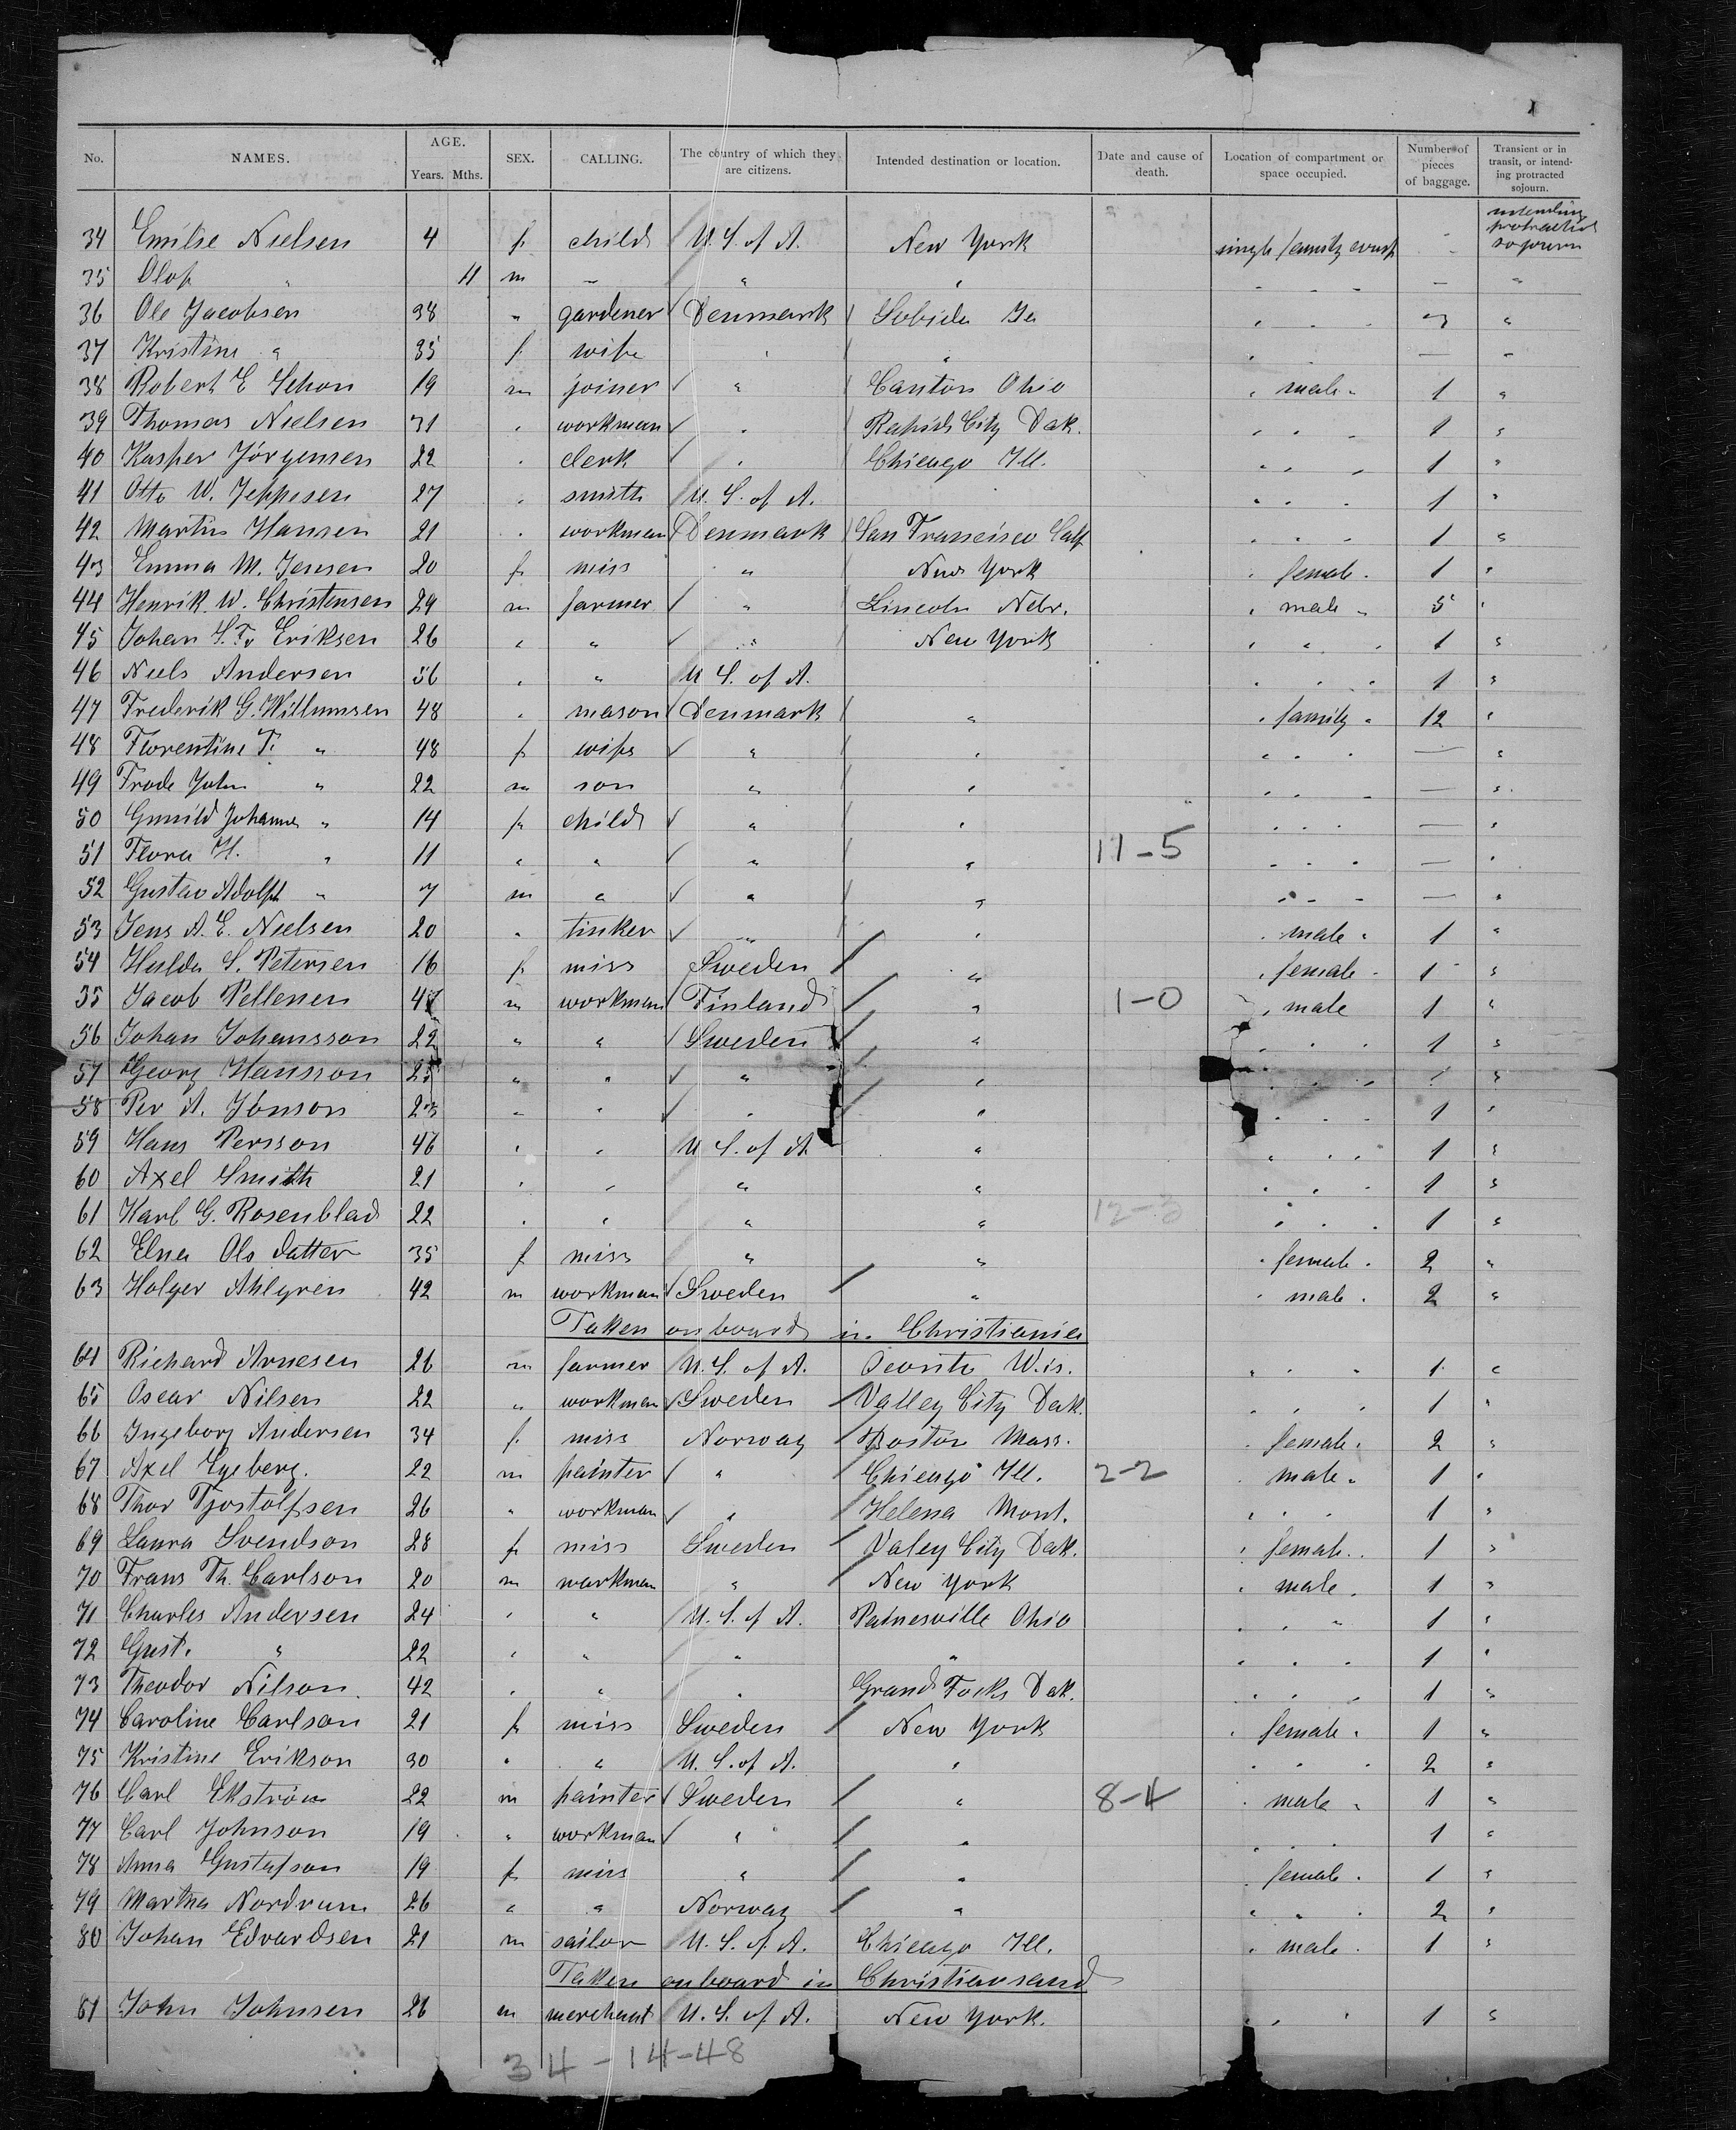 No. NAMES. AGE. Years. Mths. SEX. CALLING. The country of which they are citizens. Intended destination or location. Date and cause of death. Location of compartment or space occupied. Number of pieces of baggage. Transient or in transit, or intending protracted sojourn.
34 Emilie Nielsen 4 f child U. S. of A. New York single family comp - intending protracted sojourn
35 Olof " 11 m - " " " " " - "
36 Ole Jacobsen 38 " gardener Denmark " " " 3 "
37 Kristine " 35 f wife " " " " " - "
38 Robert E Schon 19 m joiner " Canton Ohio " male " 1 "
39 Thomas Nielsen 31 " workman " Rapids City Dak. " " " 1 "
40 Kasper Jörgensen 22 " clerk " Chicago Ill. " " " 1 "
41 Otto W. Jeppesen 27 " smith U. S. of A. " " " " 1 "
42 Martin Hansen 21 " workman Denmark San Francisco Calf " " " 1 "
43 Emma M. Jensen 20 f miss " New York " female " 1 "
44 Henrik W. Christensen 29 m farmer " Lincoln Nebr. " male " 5 "
45 Johan S. Fr Eriksen 26 " " " New York " " " 1 "
46 Niels Andersen 56 " " U. S. of A. " " " 1 "
47 Frederik G. Willumsen 48 " mason Denmark " " family " 12 "
48 Florentine T. " 48 f wife " " " " " - "
49 Frode John " 22 m son " " " " " - "
50 Gunild Johanne " 14 f child " " " " " - "
51 Flora H. " 11 " " " " 11-5 " " " - "
52 Gustav Adolph " 7 m " " " " " " - "
53 Jens A. E. Nielsen 20 " tinker " " " male " 1 "
54 Hulda S. Petersen 16 f miss Sweden " " female " 1 "
55 Jacob Pellenen m workman Finland " 1-0 " male 1 "
56 Johan Johansson 22 " " Sweden " " " " 1 "
57 Georg Hansson 25 " " " " " " " 1 "
58 Per A. Jönson 23 " " " " " " " 1 "
59 Hans Persson 46 " " U. S. of A " " " " 1 "
60 Axel Smith 21 " " " " " " " 1 "
61 Karl G. Rosenblad 22 " " " " 12-3 " " " 1 "
62 Elna Ols datter 35 f miss " " " female " 2 "
63 Holger Ahlgren 42 m workman Sweden " " male " 2 "
Taken onboard in Christiania
64 Richard Arnesen 26 m farmer U. S. of A. Oconto Wis. " " " 1 "
65 Oscar Nilsen 22 " workman Sweden Valley City Dak. " " " 1 "
66 Ingeborg Andersen 34 f miss Norway Boston Mass. " female " 2 "
67 Axel Egeberg. 22 m painter " Chicago Ill. 2-2 " male " 1 "
68 Thor Tjostolfsen 26 " workman " Helena Mont. " " " 1 "
69 Laura Svendson 28 f miss Sweden Valey City Dak. " female " 1 "
70 Frans Th. Carlson 20 m workman " New York " male " 1 "
71 Charles Andersen 24 " " U. S. of A. Painesville Ohio " " " 1 "
72 Gust. " 22 " " " " " " " 1 "
73 Theodor Nilson 42 " " " Grand Focks Dak. " " " 1 "
74 Caroline Carlson 21 f miss Sweden New York " female " 1 "
75 Kristine Erikson 30 " " U. S. of A. " " " " 2 "
76 Carl Ekström 22 m painter Sweden " 8-4 " male " 1 "
77 Carl Johnson 19 " workman " " " " " 1 "
78 Anna Gustafson 19 f miss " " " female " 1 "
79 Martha Nordrum 26 " " Norway " " " " 2 "
80 Johan Edvardsen 21 m sailor U. S. of A. Chicago Ill. " male " 1 "
Taken onboard in Christiansand
81 John Johnsen 26 m merchant U. S. of A. New York. " " " 1 "
34-14-48